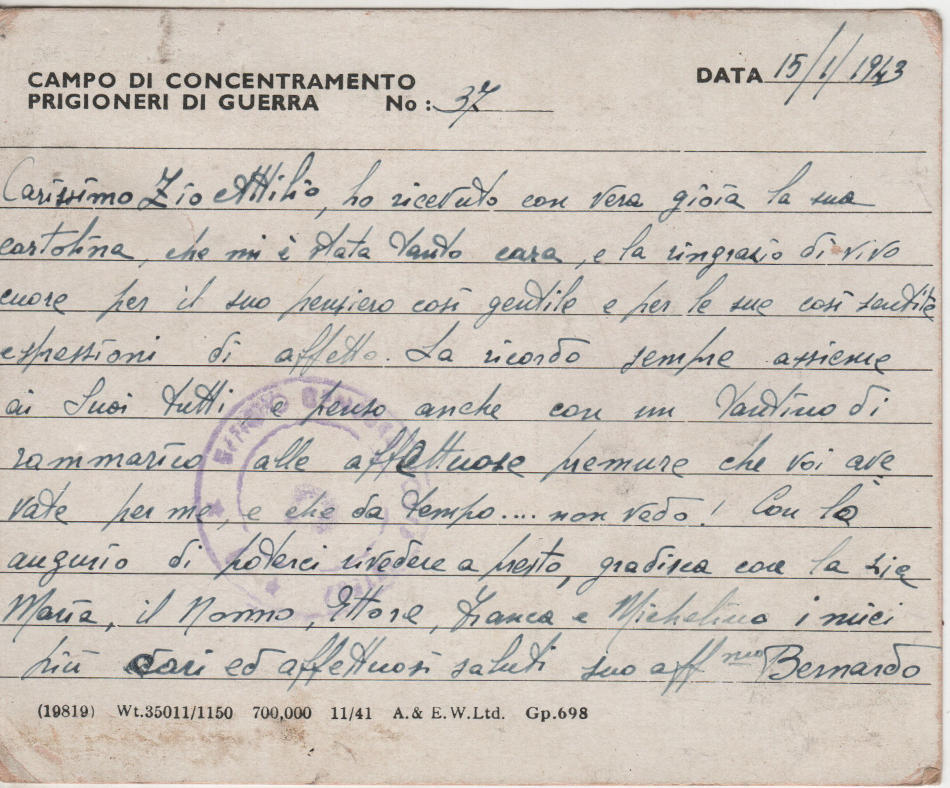 CAMPO DI CONCENTRAMENTO
PRIGIONERI DI GUERRA No : 37
DATA 15/1/1943
Carissimo Zio Attilio, ho ricevuto con vera gioia la sua
cartolina, che mi è stata tanto cara, e la ringrazio di vivo
cuore per il suo pensiero così gentile e per le sue così sentite
espressioni di affetto. La ricordo sempre assieme
ai Suoi tutti e penso anche con un tantino di
rammarico alle affettuose premure che voi ave
vate per me, e che da tempo.... non vedo! Con lo
augurio di poterci rivedere a presto, gradisca con la zia
Maria, il Nonno, Ettore, Franca e Michelino i miei
più cari ed affettuosi saluti suo aff.mo Bernardo
(19819) Wt.35011/1150 700,000 11/41 A. & E.W.Ltd. Gp.698